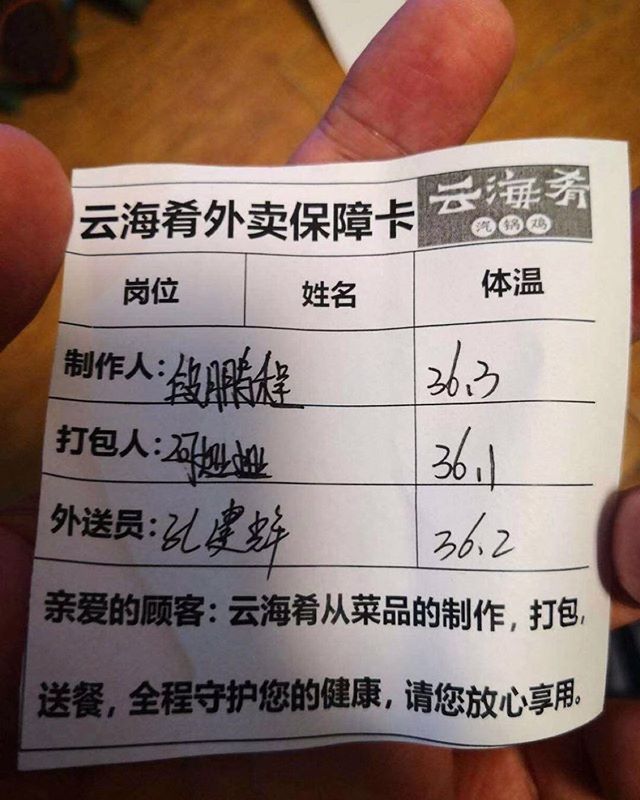 云海肴外卖保障卡
云海肴
汽锅鸡
岗位 姓名 体温
制作人：段鹏程 36.3
打包人： 36.1
外送员：孔建辉 36.2
亲爱的顾客：云海肴从菜品的制作，打包，
送餐，全程守护您的健康，请您放心享用。